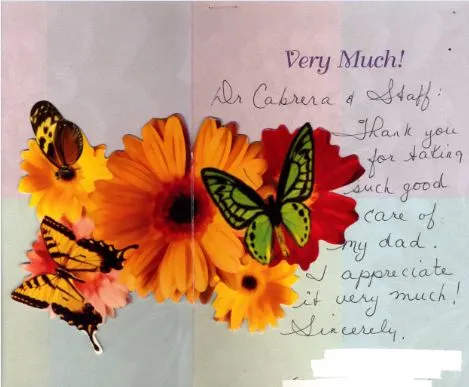 Very Much!
Dr Cabrera & Staff:
Thank you
for taking
such good
care of
my dad.
I appreciate
it very much!
Sincerely,